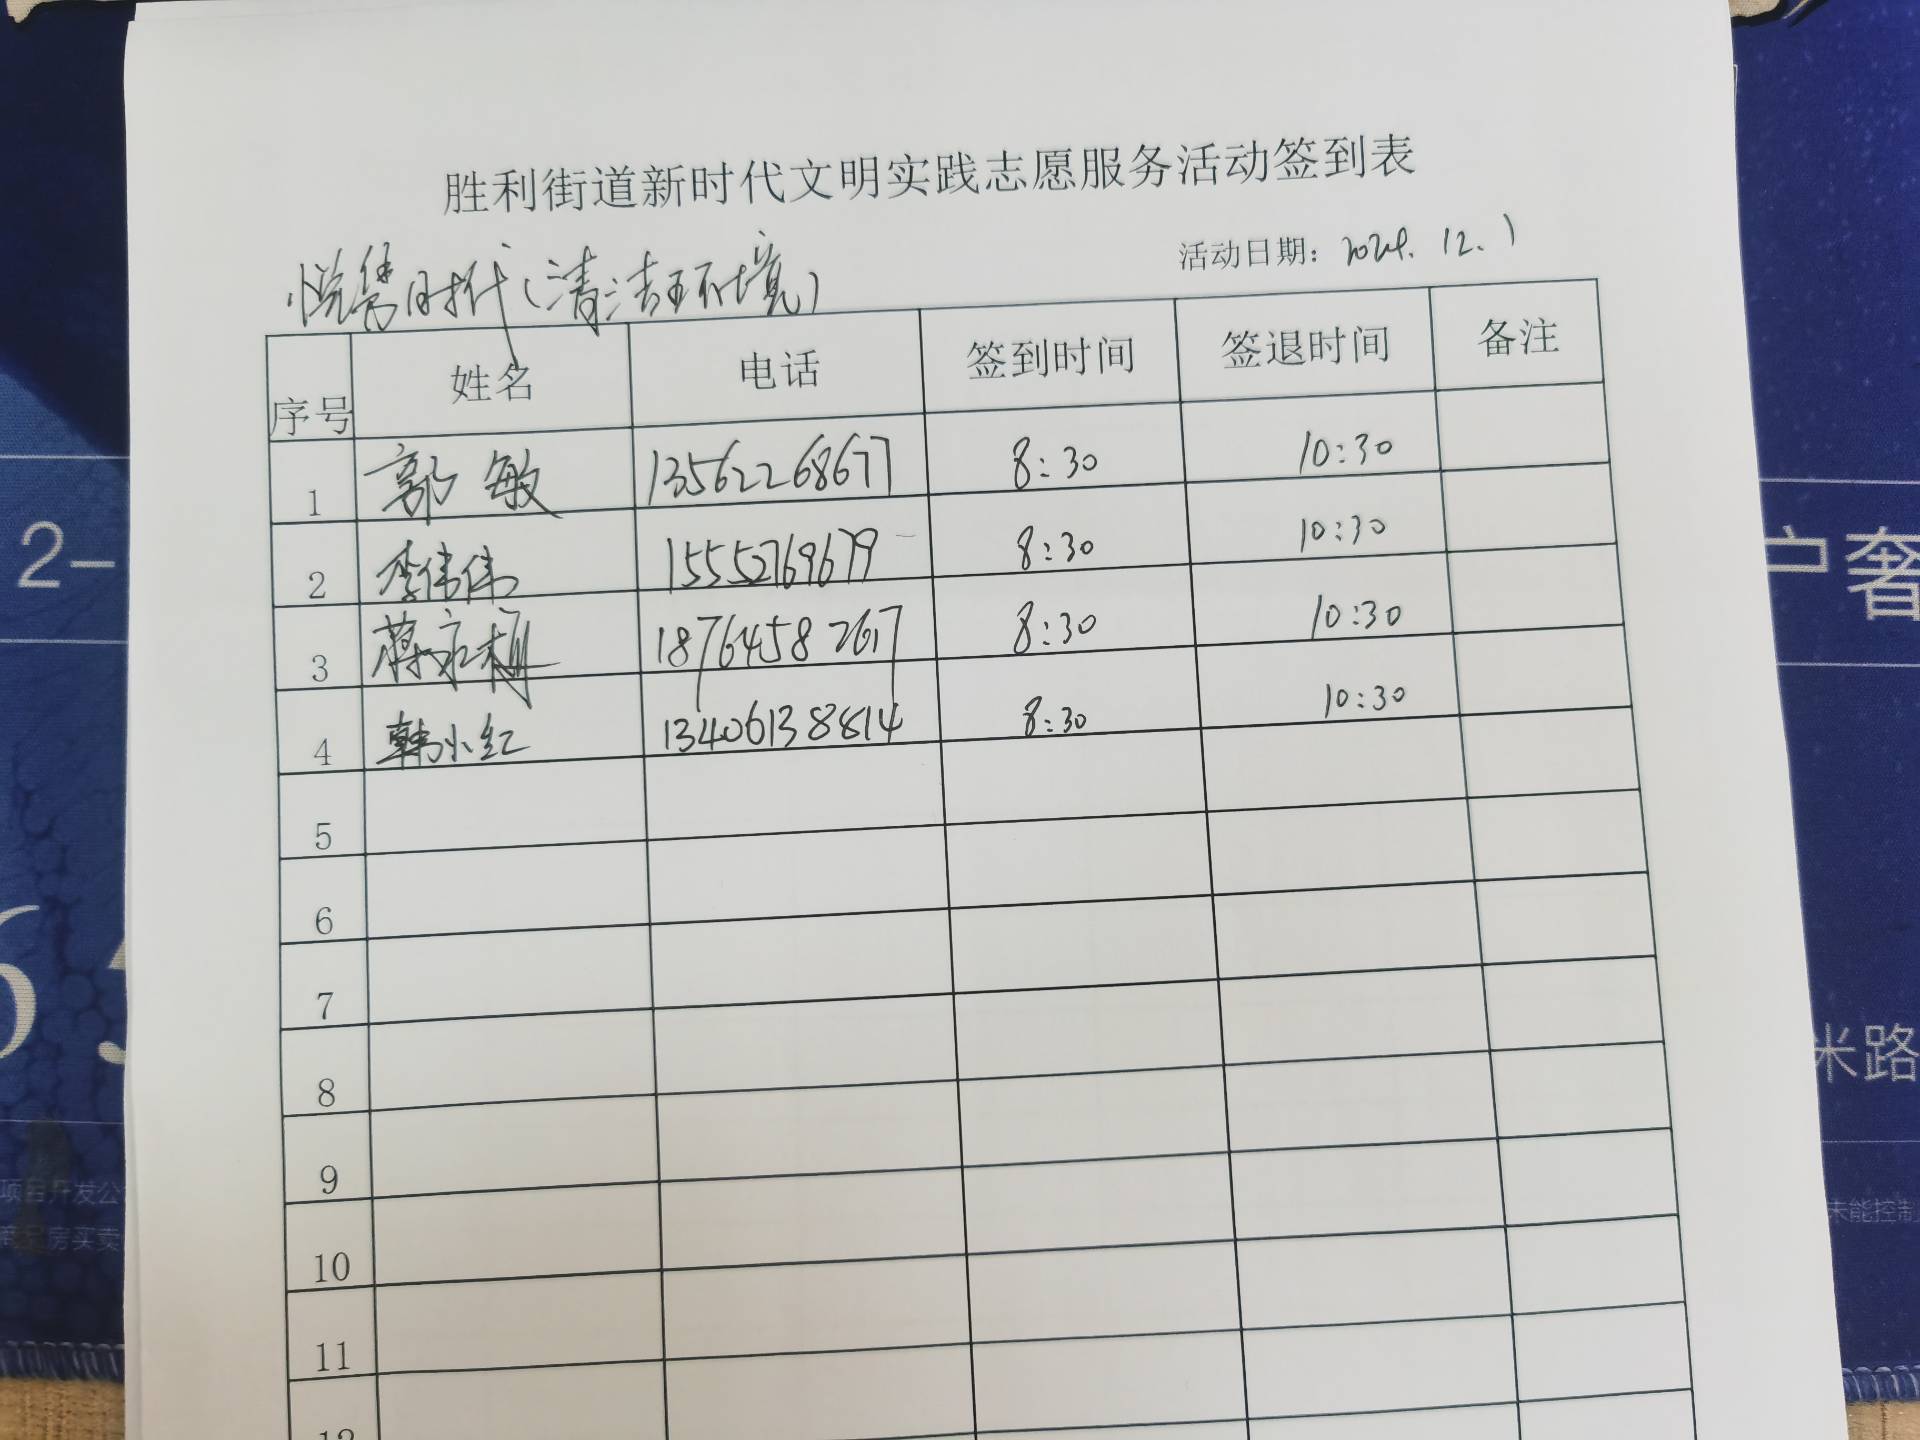 胜利街道新时代文明实践志愿服务活动签到表
悦隽时代（清洁环境） 活动日期：2024.12.1
序号 姓名 电话 签到时间 签退时间 备注
1 郭敏 13562268677 8:30 10:30
2 李伟伟 15552769679 8:30 10:30
3 18764582617 8:30 10:30
4 韩小红 13406138814 8:30 10:30
5
6
7
8
9
10
11
12
2-
户奢
65
米路
项目开发公
商品房买卖
未能控制